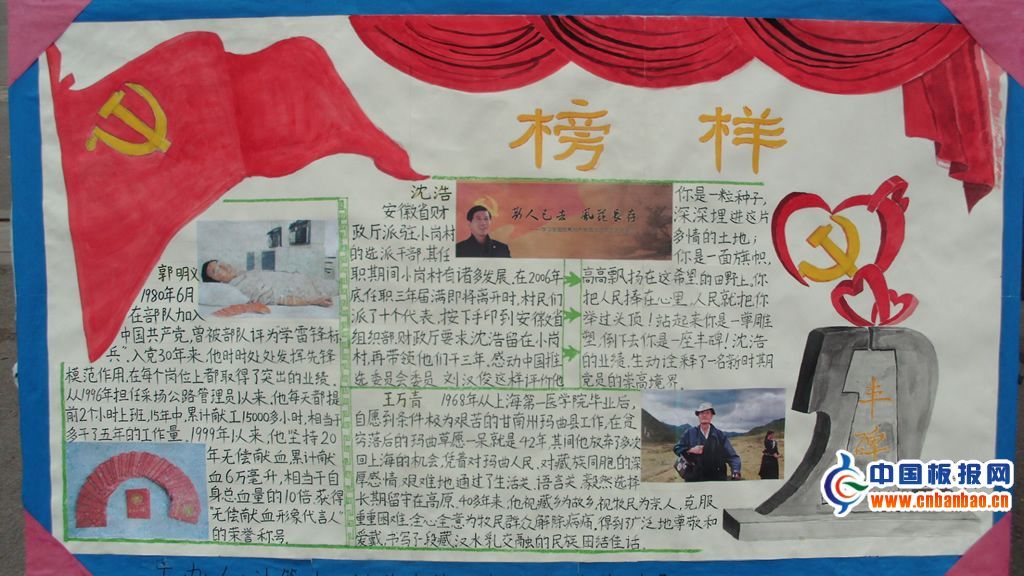 榜样
郭明义
1980年6月
在部队加入
中国共产党,曾被部队评为学雷锋标
兵、入党30年来,他时时处处发挥先锋
模范作用,在每个岗位上都取得了突出的业绩.
从1996年担任采场公路管理员以来,他每天都提
前2个小时上班,15年中,累计献工15000多小时,相当于
多干了五年的工作量.1999年以来,他坚持20
年无偿献血累计献
血6万毫升,相当于自
身总血量的10倍获得
“无偿献血形象代言人”
的荣誉称号.
沈浩
安徽省财
政厅派驻小岗村
的选派干部,其任
职期间小岗村有诸多发展.在2006年
底任职三年届满即将离开时,村民们
派了十个代表,按下手印到安徽省
组织部.财政厅要求沈浩留在小岗
村,再带领他们干三年,感动中国推
选委员会委员 刘汉俊这样评价他
你是一粒种子,
深深埋进这片
多情的土地;
你是一面旗帜,
高高飘扬在这希望的田野上.你
把人民捧在心里,人民就把你
举过头顶!站起来你是一尊雕
塑,倒下去你是一座丰碑!沈浩
的业绩,生动诠释了一名新时期
党员的崇高境界.
王万青 1968年从上海第一医学院毕业后,
自愿到条件极为艰苦的甘南州玛曲县工作,在定
穷落后的玛曲草原一呆就是42年,其间他放弃了多次
回上海的机会,凭着对玛曲人民,对藏族同胞的深
厚感情,艰难地通过了生活关,语言关,毅然选择
长期留守在高原.40多年来,他视藏乡为故乡,视牧民为亲人,克服
重重困难,全心全意为牧民群众解除病痛,得到广泛地尊敬和
爱戴,书写了段藏汉水乳交融的民族团结佳话.
丰碑
中国板报网
www.cnbanbao.cn